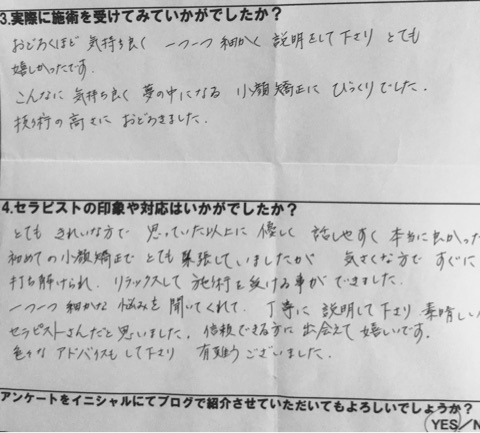 3.実際に施術を受けてみていかがでしたか？
おどろくほど 気持ち良く 一つ一つ 細かく 説明をして下さり とても
嬉しかったです.
こんなに 気持ち良く 夢の中になる 小顔矯正に びっくりでした.
技術の高さに おどろきました.
4.セラピストの印象や対応はいかがでしたか？
とても きれいな方で 思っていた以上に 優しく 話しやすく 本当に良かった
初めての小顔矯正で とても緊張していましたが 気さくな方で すぐに
打ち解けられ. リラックスして 施術を受ける事が できました.
一つ一つ 細かな 悩みを聞いてくれて. 丁寧に 説明して下さり 素晴しい
セラピストさんだと思いました. 信頼できる方に 出会えて 嬉しいです.
色々な アドバイスもして下さり 有難うございました.
アンケートをイニシャルにてブログで紹介させていただいてもよろしいでしょうか？
YES／N